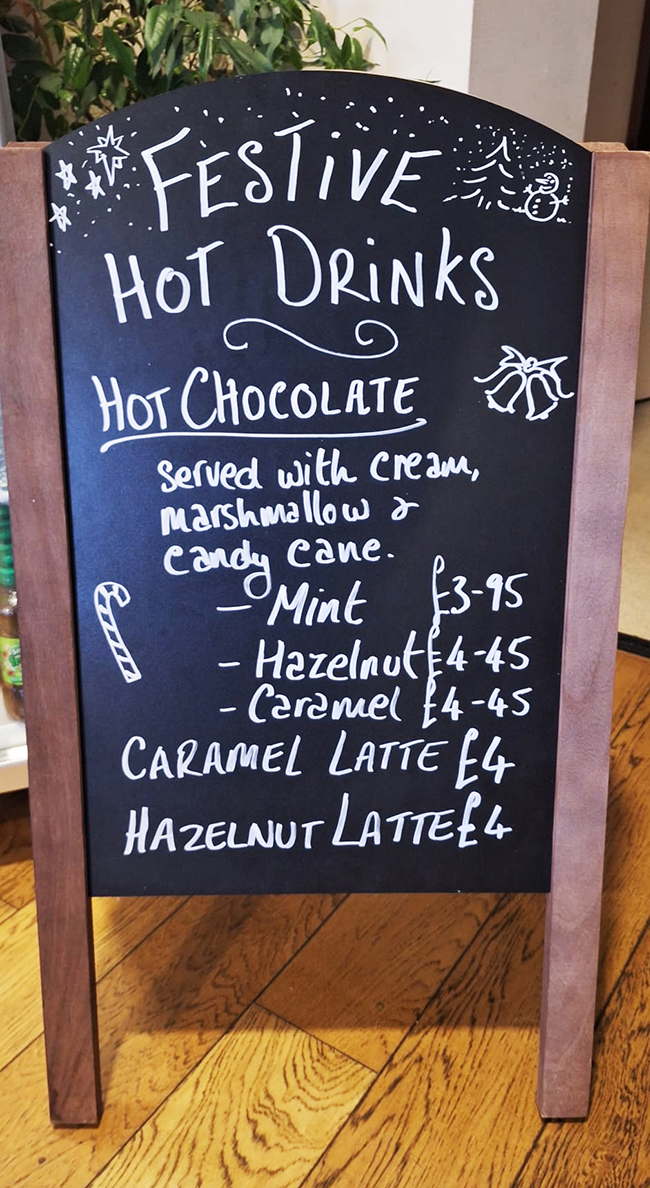 FESTiVE
HOT DRiNKS
HOT CHOCOLATE
served with cream,
marshmallow &
candy cane.
– Mint £3-95
– Hazelnut £4-45
– Caramel £4-45
CARAMEL LATTE £4
HAZELNUT LATTE £4